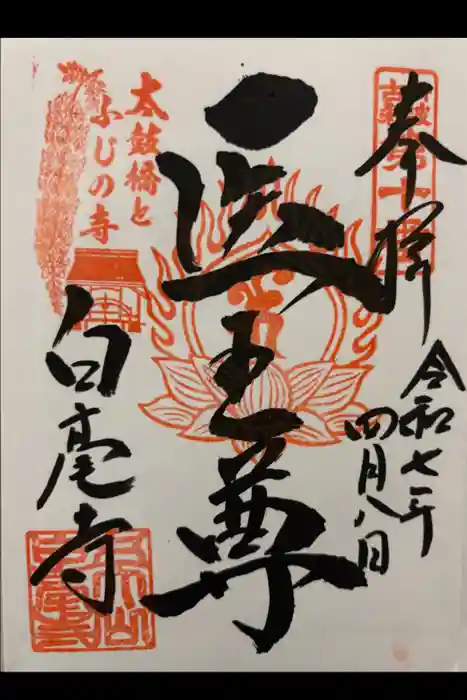 奉拝
令和七年
四月八日
医王尊
太鼓橋と
ふじの寺
白毫寺